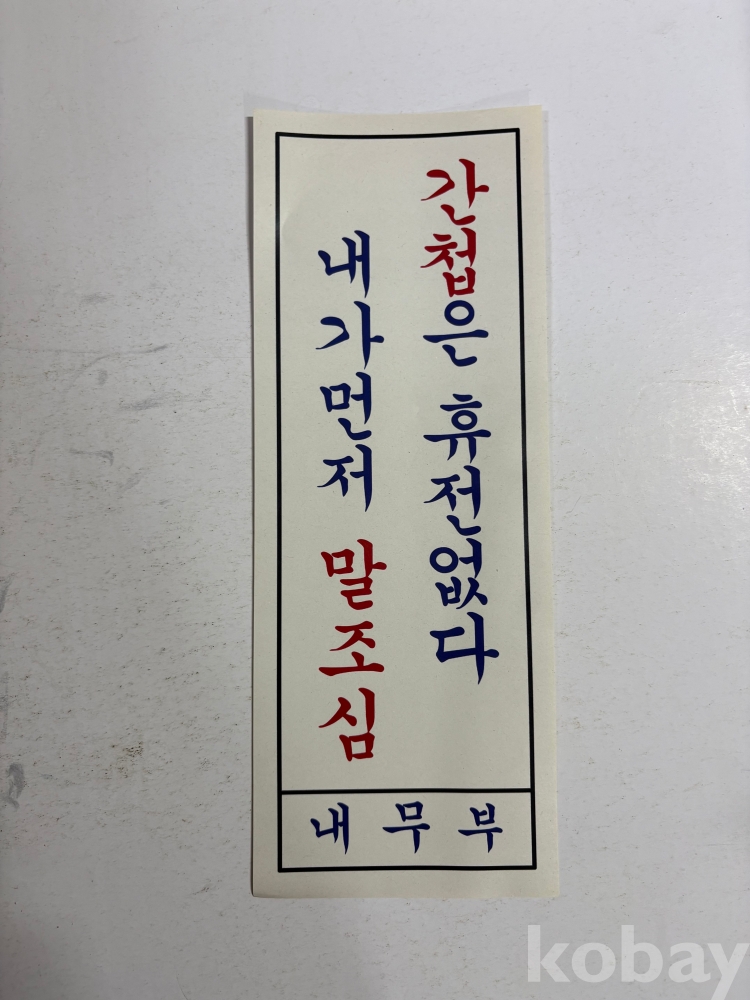 간첩은 휴전없다
내가먼저 말조심
내무부
kobay